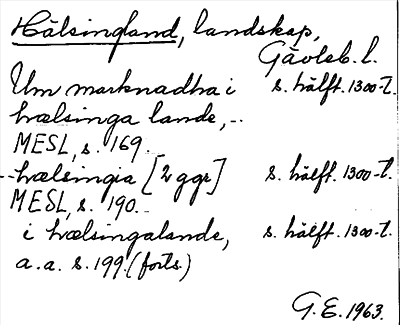 Hälsingland, landskap,
Gävleb. l.
Um marknadha i s. hälft. 1300-t.
hælsinga lande,..
MESL, s. 169...
--hælsingia [2 ggr] s. hälft. 1300-t.
MESL, s. 190...
i hælsingalande, s. hälft. 1300-t.
a.a. s. 199. (forts.)
G.E. 1963.